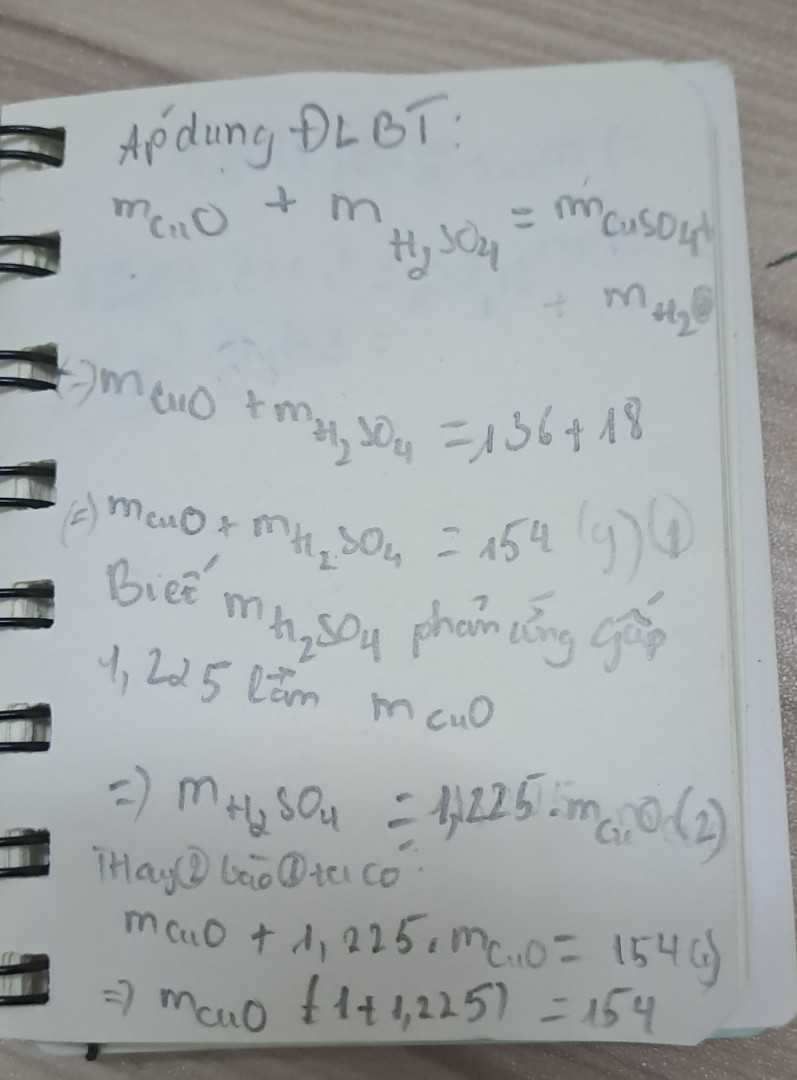 Áp dụng ĐLBT:
mCuO + mH2SO4 = mCuSO4 +
+ mH2O
(=) mCuO + mH2SO4 = 136 + 18
(=) mCuO + mH2SO4 = 154 (g) (1)
Biết mH2SO4 phản ứng gấp
1,225 lần mCuO
=) mH2SO4 = 1,225 . mCuO (2)
Thay (2) vào (1) ta có:
mCuO + 1,225 . mCuO = 154 (g)
=) mCuO (1 + 1,225) = 154